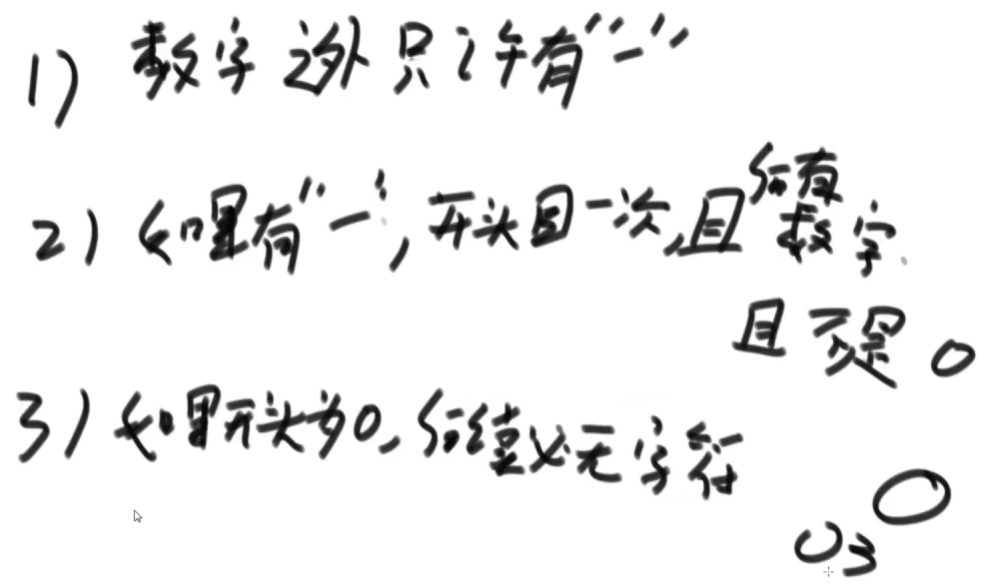 1) 数字之外只许有"-"
2) 如果有"-",开头且一次,且后有数字
且不是0
3) 如果开头为0,后续必无字符
0
03